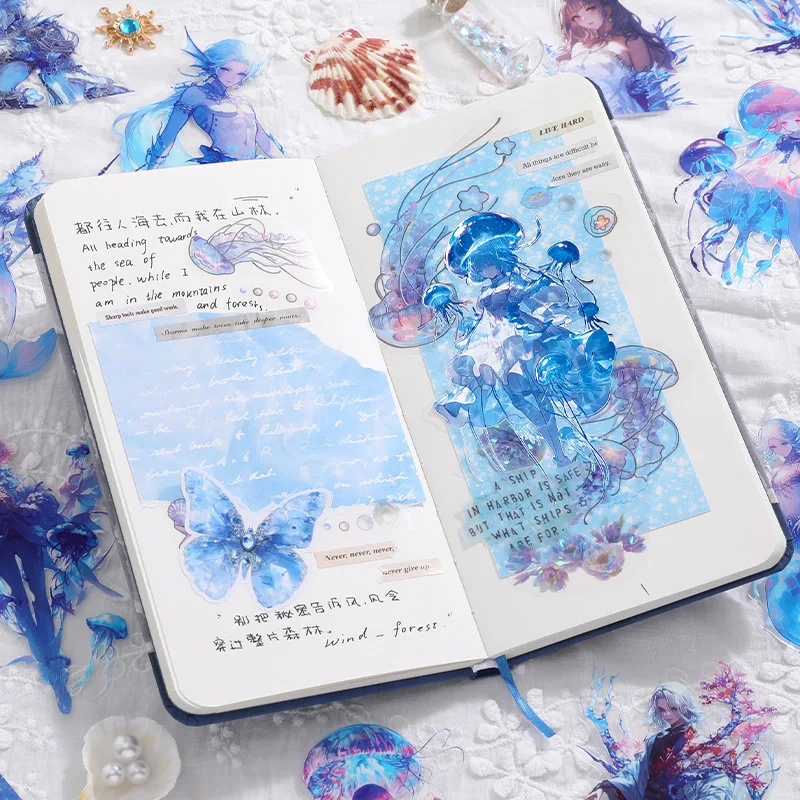 都往人海去,而我在山林.
All heading towards
the sea of
people. while I
am in the mountains
and forests.
Sharp tools make good work.
Storms make trees take deeper roots.
Never, never, never,
never give up.
"别把秘密告诉风,风会
穿过整片森林。
Wind - forest."
LIVE HARD
All things are difficult be
fore they are easy.
A SHIP
IN HARBOR IS SAFE
BUT THAT IS NOT
WHAT SHIPS
ARE FOR.